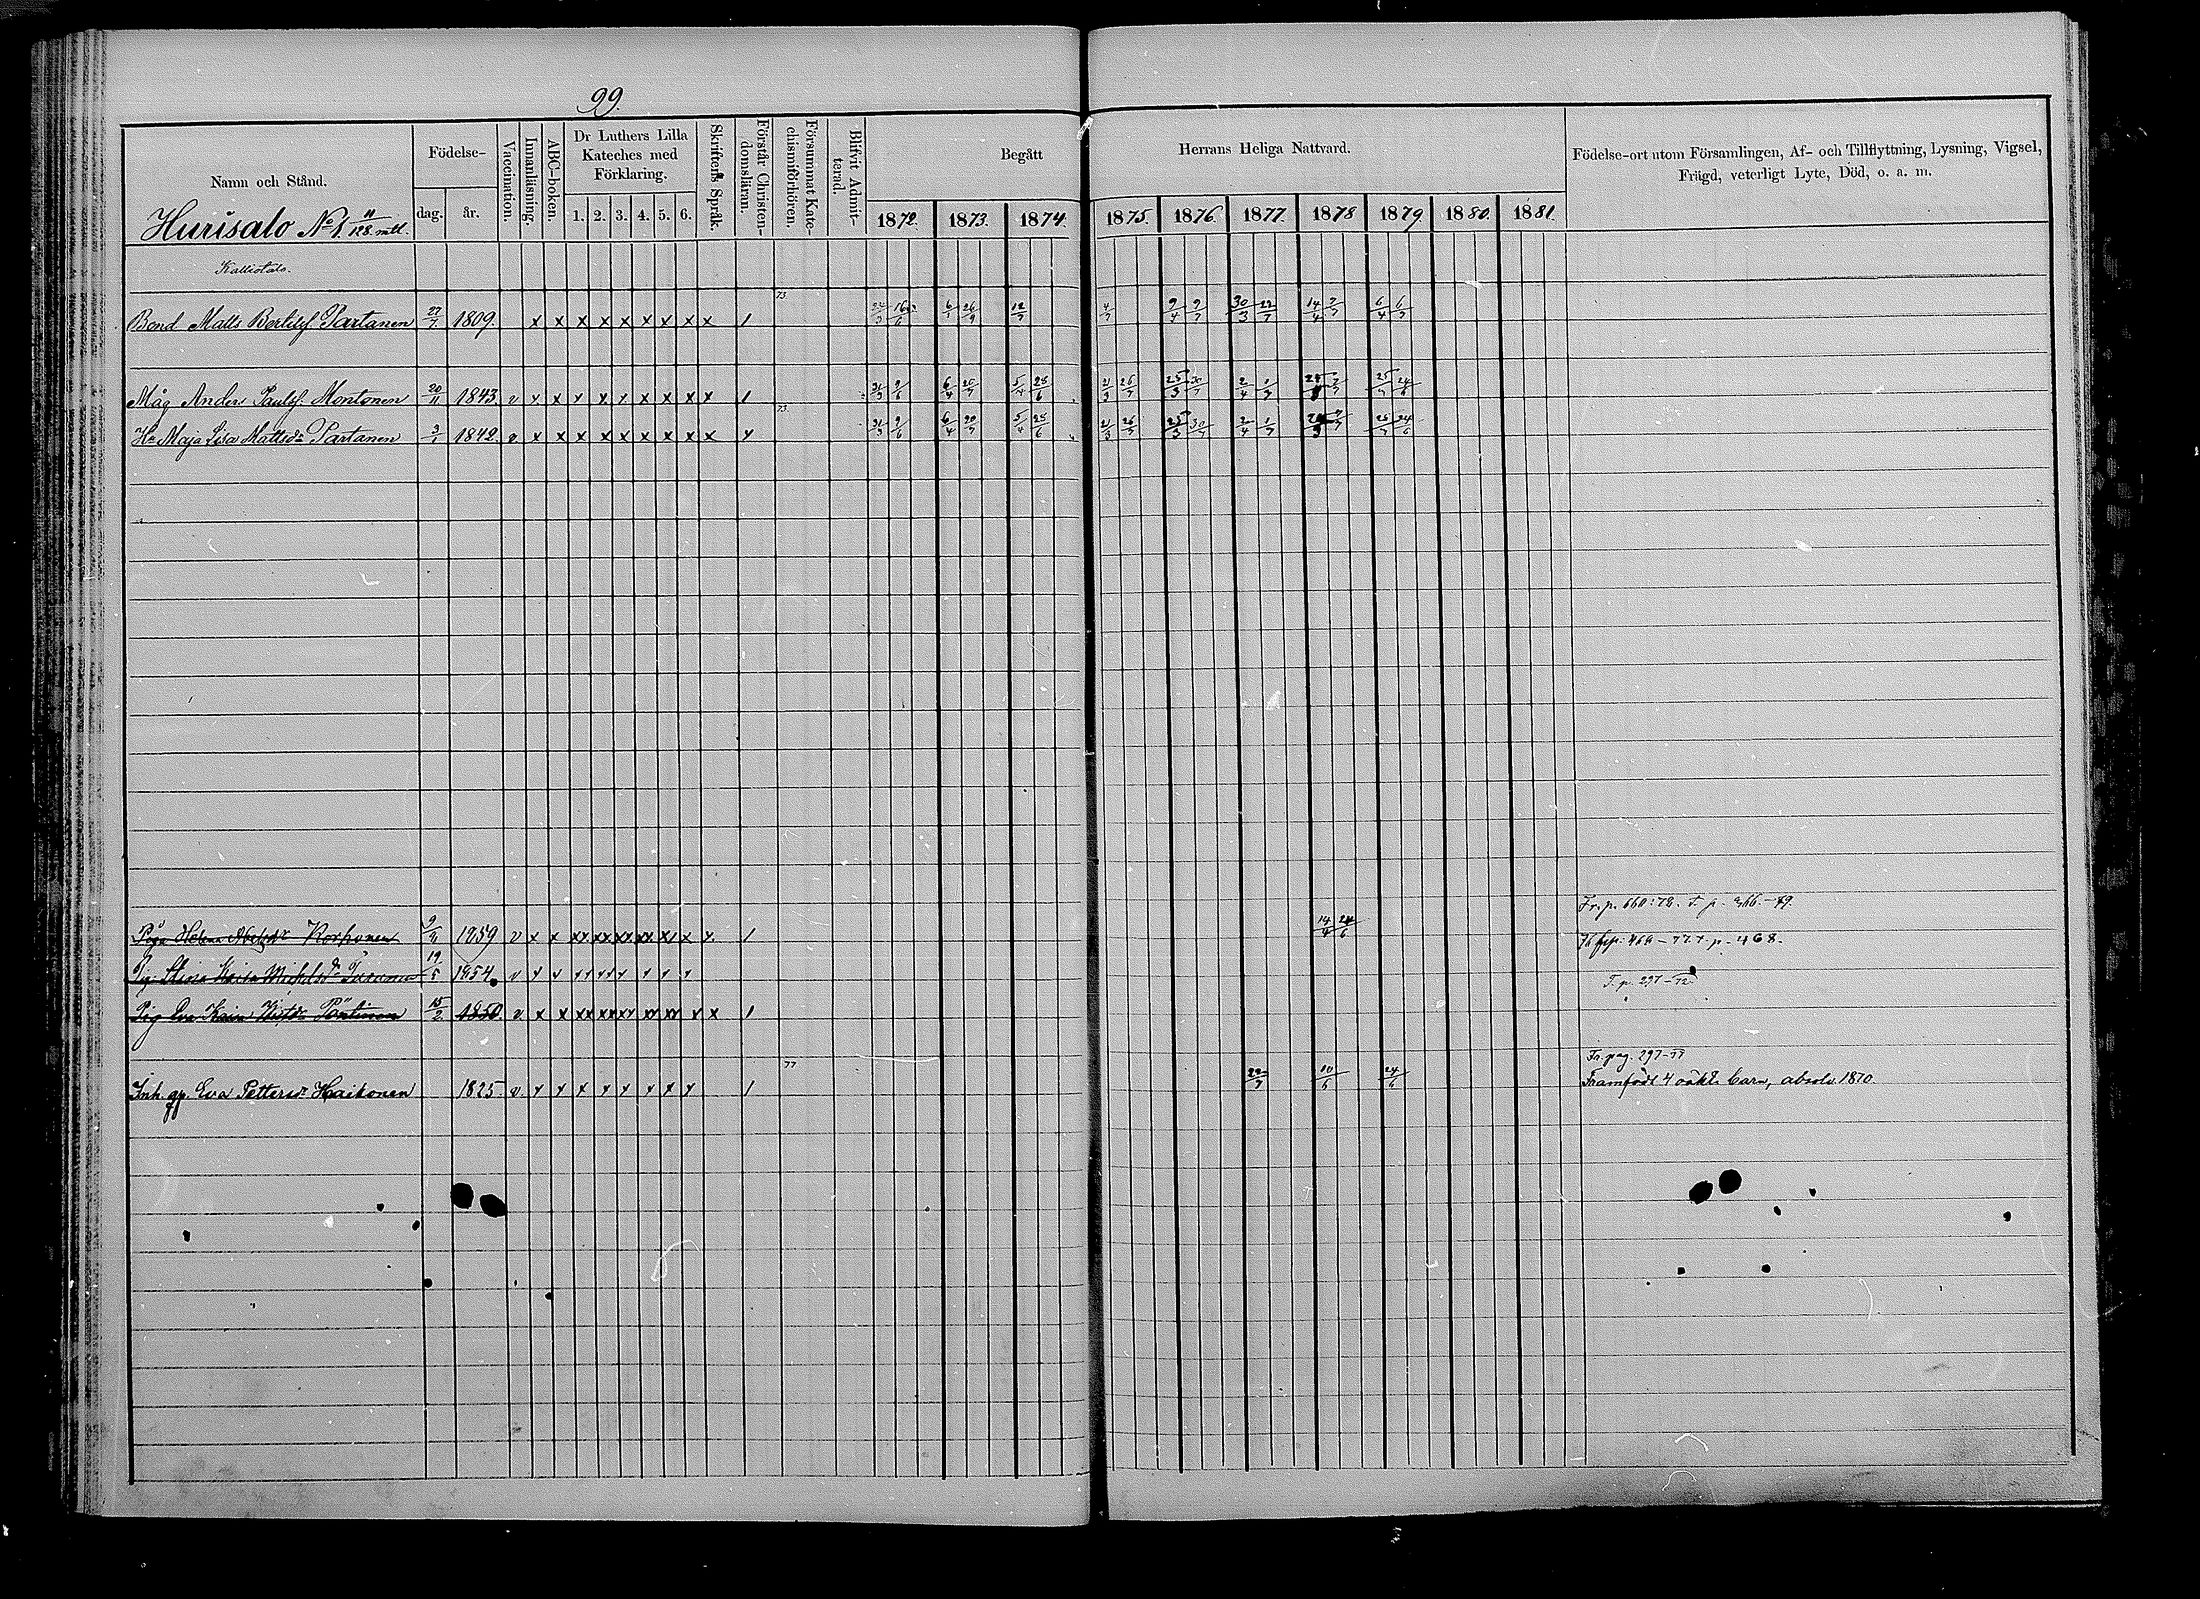 99.
Namn och Stånd.
Födelse-
dag.
år.
Vaccination.
Innanläsning.
ABC-boken.
Dr Luthers Lilla
Kateches med
Förklaring.
1. 2. 3. 4. 5. 6.
Skriftens Språk.
Förstår Christen-
domsläran.
Försummat Kate-
chismiförhören.
Blifvit Admit-
terad.
Begått
Herrans Heliga Nattvard.
1872. 1873. 1874. 1875. 1876. 1877. 1878 1879. 1880. 1881.
Födelse-ort utom Församlingen, Af- och Tillflyttning, Lysning, Vigsel,
Frägd, veterligt Lyte, Död, o. a. m.
Hurisalo No 1. 11/128 mtl.
Kalliotalo.
73.
Bond Matts Bertilsf Partanen 27/7 1809. x x x x x x x x x 1 6/1 26/9 12/7 4/7 9/4 9/7 30/3 22/7 14/4 7/7 6/4 6/7
Måg Anders Paulsf. Montonen 20/11 1843. v x x x x x x x x x 1 31/3 9/6 6/4 20/7 5/4 28/6 21/3 26/7 25/3 30/7 2/4 1/7 25/4 24/6
73.
Hu Maja Lisa Mattsdr Partanen 3/1 1842. v x x x x x x x x x 31/3 9/6 6/4 20/7 5/4 28/6 21/3 26/7 25/3 30/7 2/4 1/7 24/6
Fr. p. 660-78. T. p. 366.-79
Pig Helena Abelsdr Korhonen 1859 v x x xx xx xx xx x x x 1 14/4 24/6
p. 468.
19/5 1854. v
T. p. 297-72.
Pig Eva Kaisa 15/2 1850. v. x x xx xx xx xx x x 1
77
Fr. pag. 297-77
Inh. gp. Eva Pettersdr Haikonen 1825. v. x x x x x x x x 1 22/7 10/6 24/6 Framfödt 4 oäkt. barn, absolv. 1870.